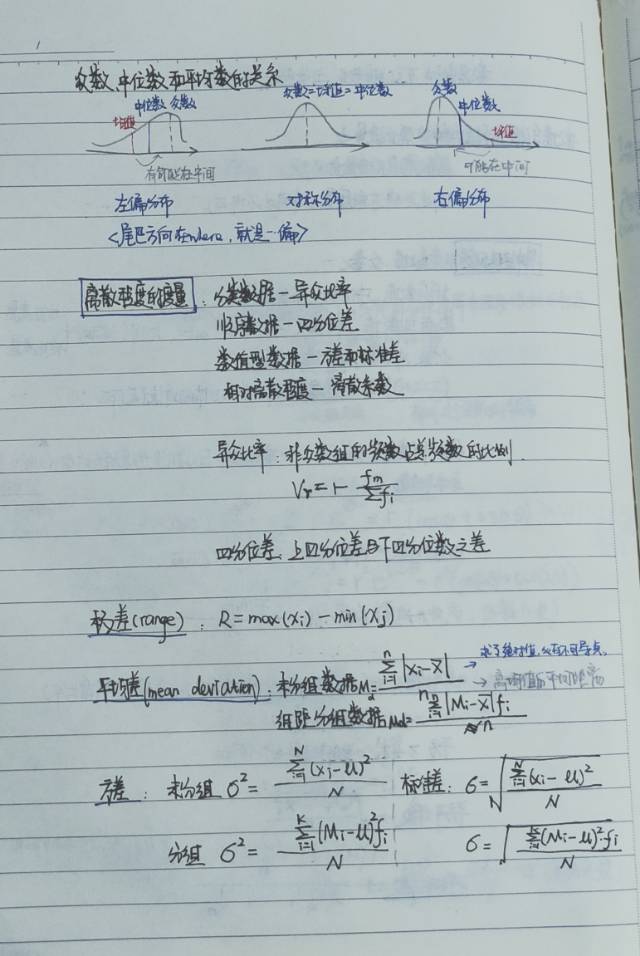 众数、中位数和平均数的关系
均值 中位数 众数
众数=均值=中位数
众数 中位数 均值
有可能在中间
可能在中间
左偏分布 对称分布 右偏分布
<尾巴方向在where，就是一偏>
离散程度的度量：分类数据—异众比率
顺序数据—四分位差
数值型数据—方差和标准差
相对离散程度—离散系数
异众比率：非众数组的频数占总频数的比例.
Vr = 1 - fm/Σfi
四分位差：上四分位差与下四分位数之差
极差(range)：R=max(xi)-min(xj)
平均差(mean deviation)：未分组数据Md=Σ(i=1,n)|xi-x̄|/n
求了绝对值，∴存在不可导点.
离均值的平均距离
组距分组数据Md=Σ(i=1)|Mi-x̄|fi/n
方差：未分组 σ²=Σ(i=1,N)(xi-u)²/N 标准差：σ=√(Σ(i=1,N)(xi-u)²/N)
分组 σ²=Σ(i=1,K)(Mi-u)²fi/N σ=√(Σ(i=1,K)(Mi-u)²fi/N)